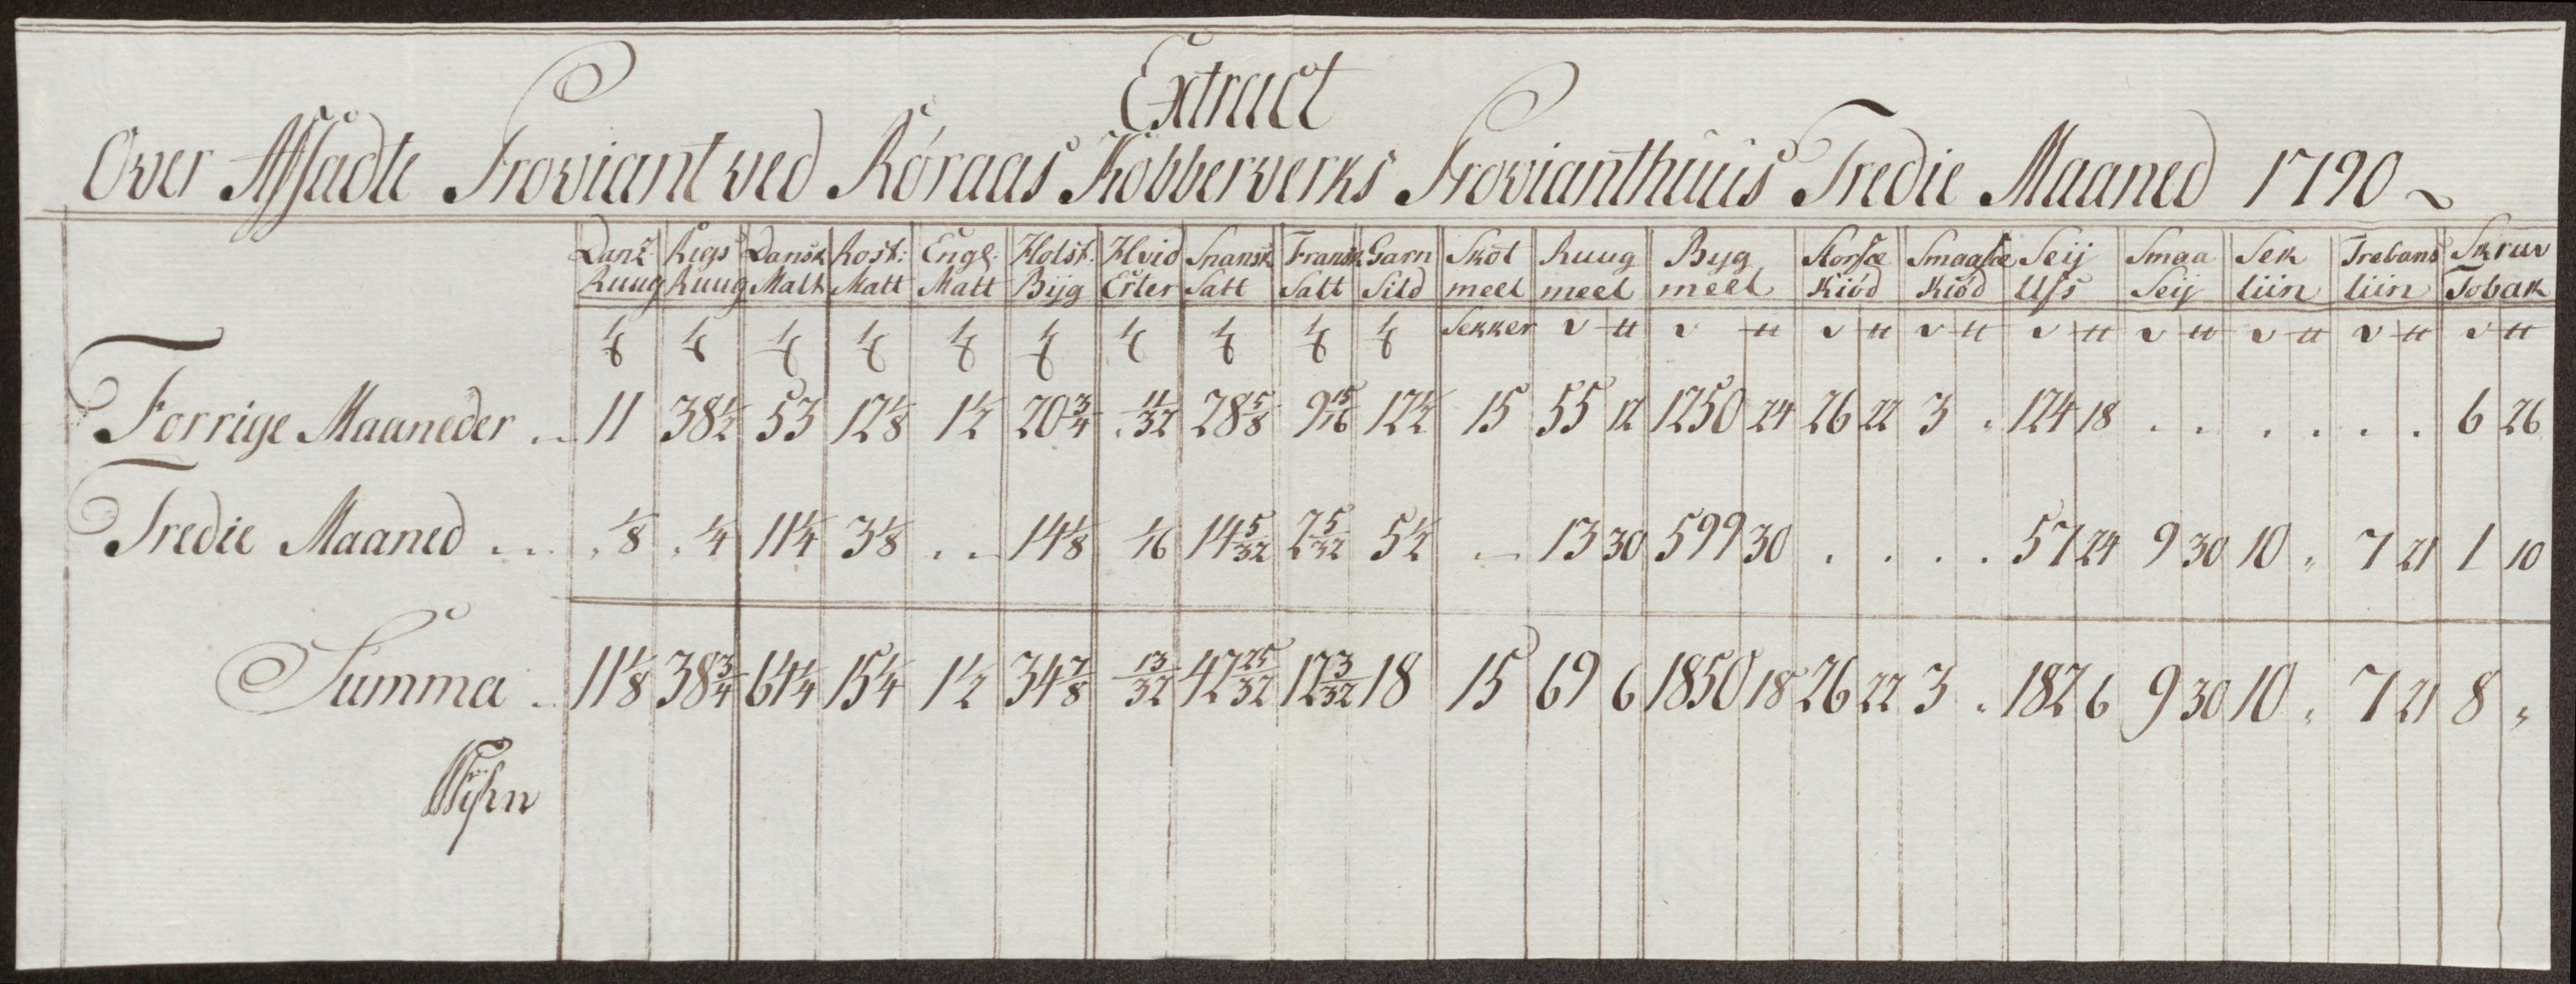 Extract
Over Afsadte Proviant ved Röraas Kobberverks Provianthuus Tredie Maaned 1790
Danz Ruug | Rigs Ruug | Dansk Malt | Rost: Malt | Engl: Malt | Holst: Byg | Hvid Erter | Spansk Salt | Fransk Salt | Garn Sild | Skot meel | Ruug meel | Byg meel | Storfæ Kiød | Smaafæ Kiød | Seij Ufs | Smaa Seij | Sek liin | Trebans liin | Skruv Tobak
Sekker
Forrige Maaneder .. 11 | 38 1/2 | 53 | 12 1/8 | 1 1/2 | 20 3/4 | . 11/32 | 28 5/8 | 9 15/16 | 12 1/2 | 15 | 55 12 | 1250 24 | 26 22 | 3 . | 124 18 | . . | . . | . . | 6 26
Tredie Maaned ... . 1/8 | . 1/4 | 11 1/4 | 3 1/8 | .. | 14 1/8 | 1/16 | 14 5/32 | 2 5/32 | 5 1/2 | .. | 13 30 | 599 30 | . . | . . | 57 24 | 9 30 | 10 " | 7 21 | 1 10
Summa .. 11 1/8 | 38 3/4 | 64 1/4 | 15 1/4 | 1 1/2 | 34 7/8 | 13/32 | 42 25/32 | 12 3/32 | 18 | 15 | 69 6 | 1850 18 | 26 22 | 3 . | 182 6 | 9 30 | 10 " | 7 21 | 8 "